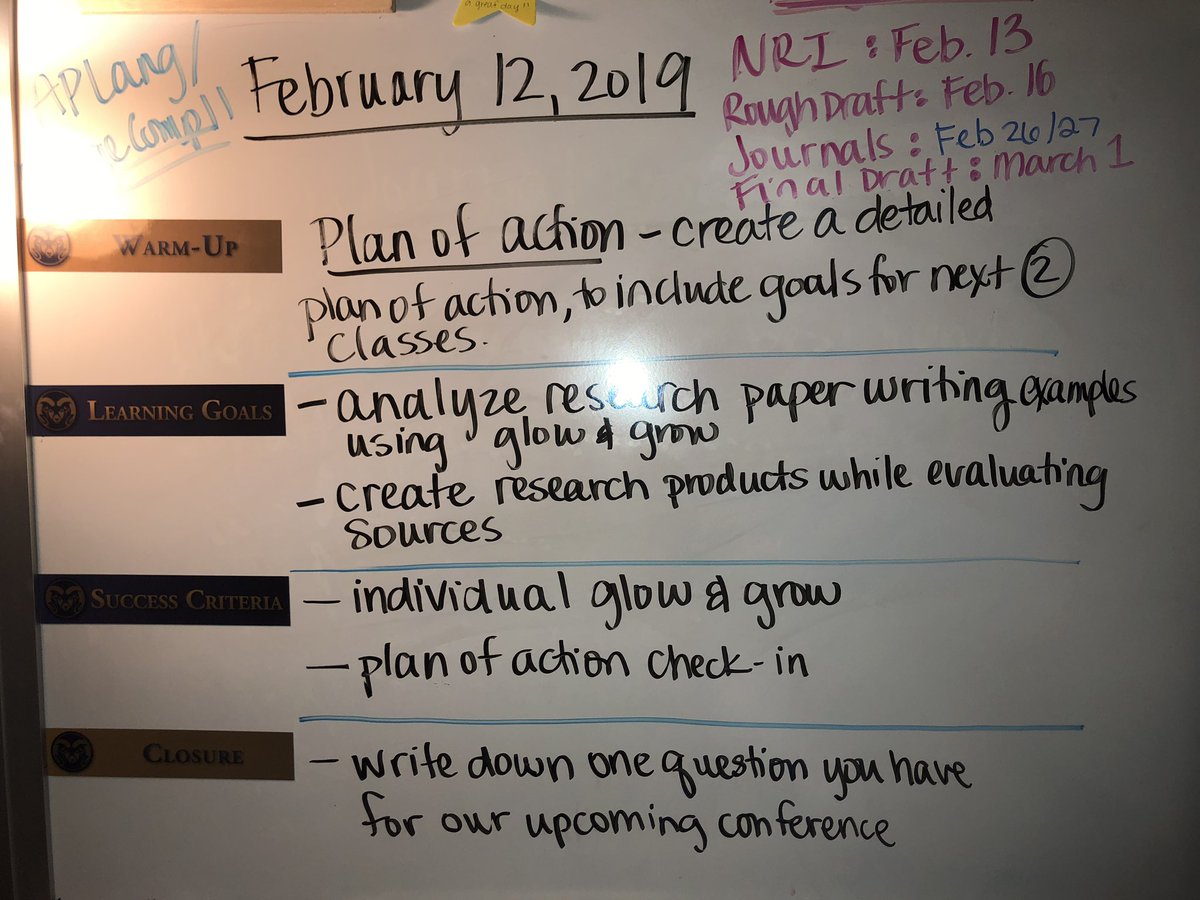 a great day!!
APLang/
Comp11
February 12, 2019
NRI : Feb. 13
Rough Draft: Feb. 16
Journals : Feb 26/27
Final Draft : March 1
WARM-UP
Plan of action - create a detailed
plan of action, to include goals for next 2
classes.
LEARNING GOALS
- analyze research paper writing examples
using glow & grow
- create research products while evaluating
sources
SUCCESS CRITERIA
- individual glow & grow
- plan of action check-in
CLOSURE
- write down one question you have
for our upcoming conference